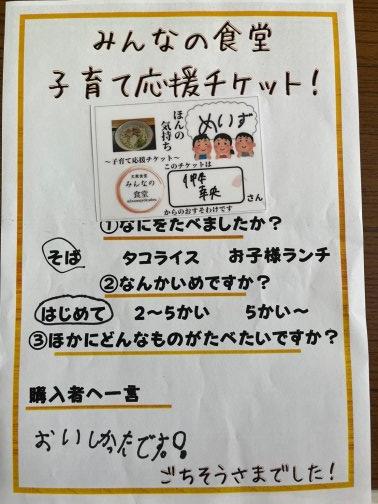 みんなの食堂
子育て応援チケット!
ほんの
気持ち
めいず
〜子育て応援チケット〜
このチケットは
みんなの
食堂
幸央
さん
からのおすそわけです
①なにをたべましたか?
そば タコライス お子様ランチ
②なんかいめですか?
はじめて 2〜5かい 5かい〜
③ほかにどんなものがたべたいですか?
購入者へ一言
おいしかったです!
ごちそうさまでした!